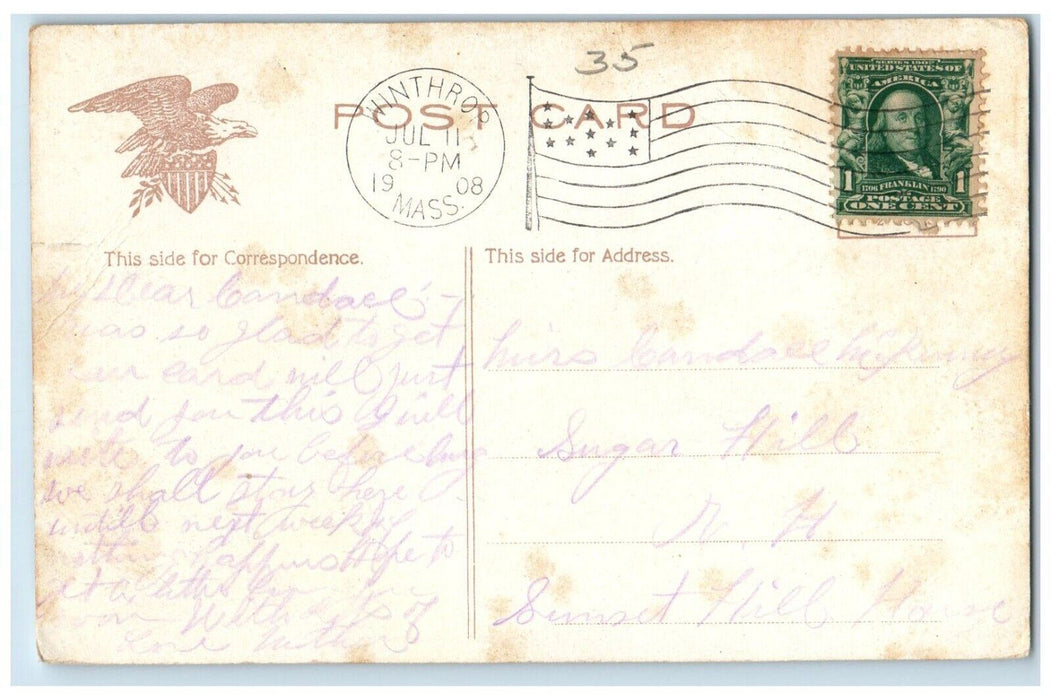 35
POST CARD
WINTHROP
JUL 11
8-PM
19 08
MASS.
SERIES 1902
UNITED STATES OF
AMERICA
1 1706 FRANKLIN 1790 1
POSTAGE
ONE CENT
This side for Correspondence.
My Dear Candace,-
was so glad to get
card will just
send you this I will
write to you before long
we shall stay here
until next week if
nothing happens Hope to
get a letter from you
soon With lots of
Love
This side for Address.
Miss Candace
Sugar Hill
N. H
Sunset Hill House